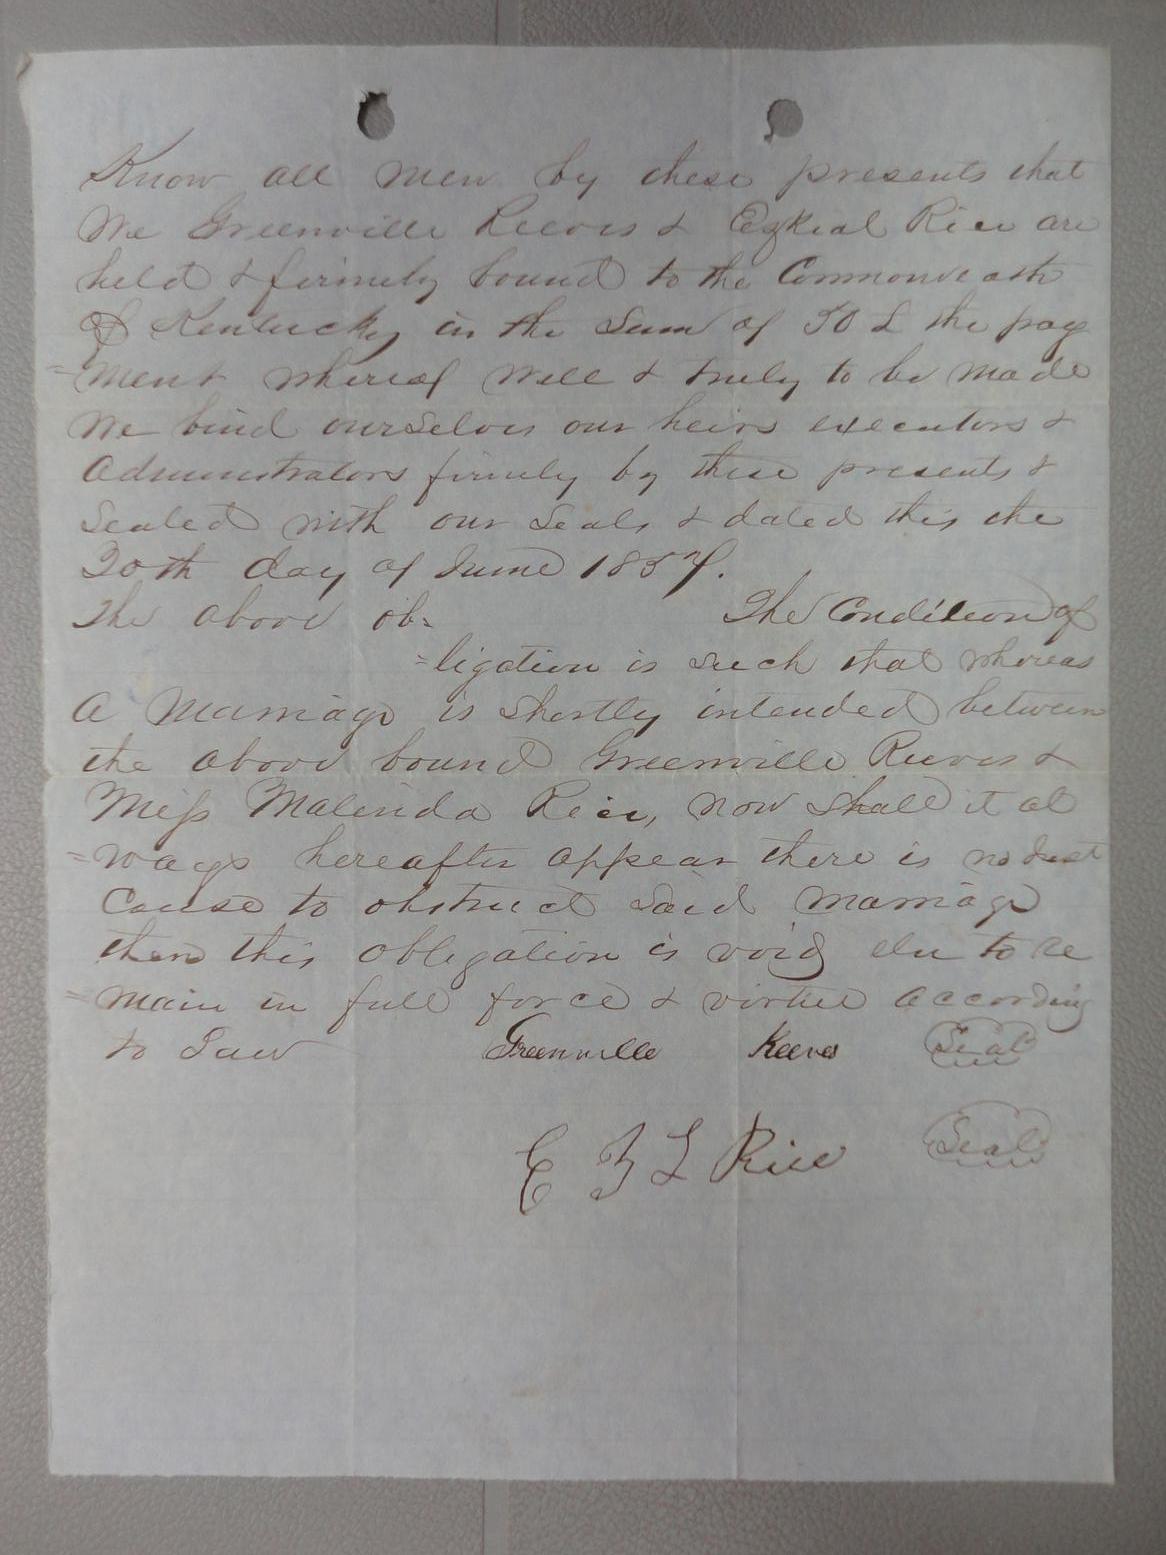 Know all men by these presents that
We Greenville Reeves & Ezkial Rice are
held & firmely bound to the Commonweath
of Kentucky in the Sum of 50 L the pay
=ment whereof well & truly to be made
We bind ourselves our heirs executors &
Administrators firmly by these presents &
Sealed with our Seals & dated this the
20th day of June 1857.
The Condition of
The above ob-
=ligation is such that whereas
A Marriage is shortly intended between
the above bound Greenville Reeves &
Miss Malinda Rice, now shall it al
=ways hereafter appear there is no Just
Cause to obstruct said marriage
then this obligation is void else to re
=main in full force & virtue according
to Law Greenville Reeves Seal
E Z L Rice Seal